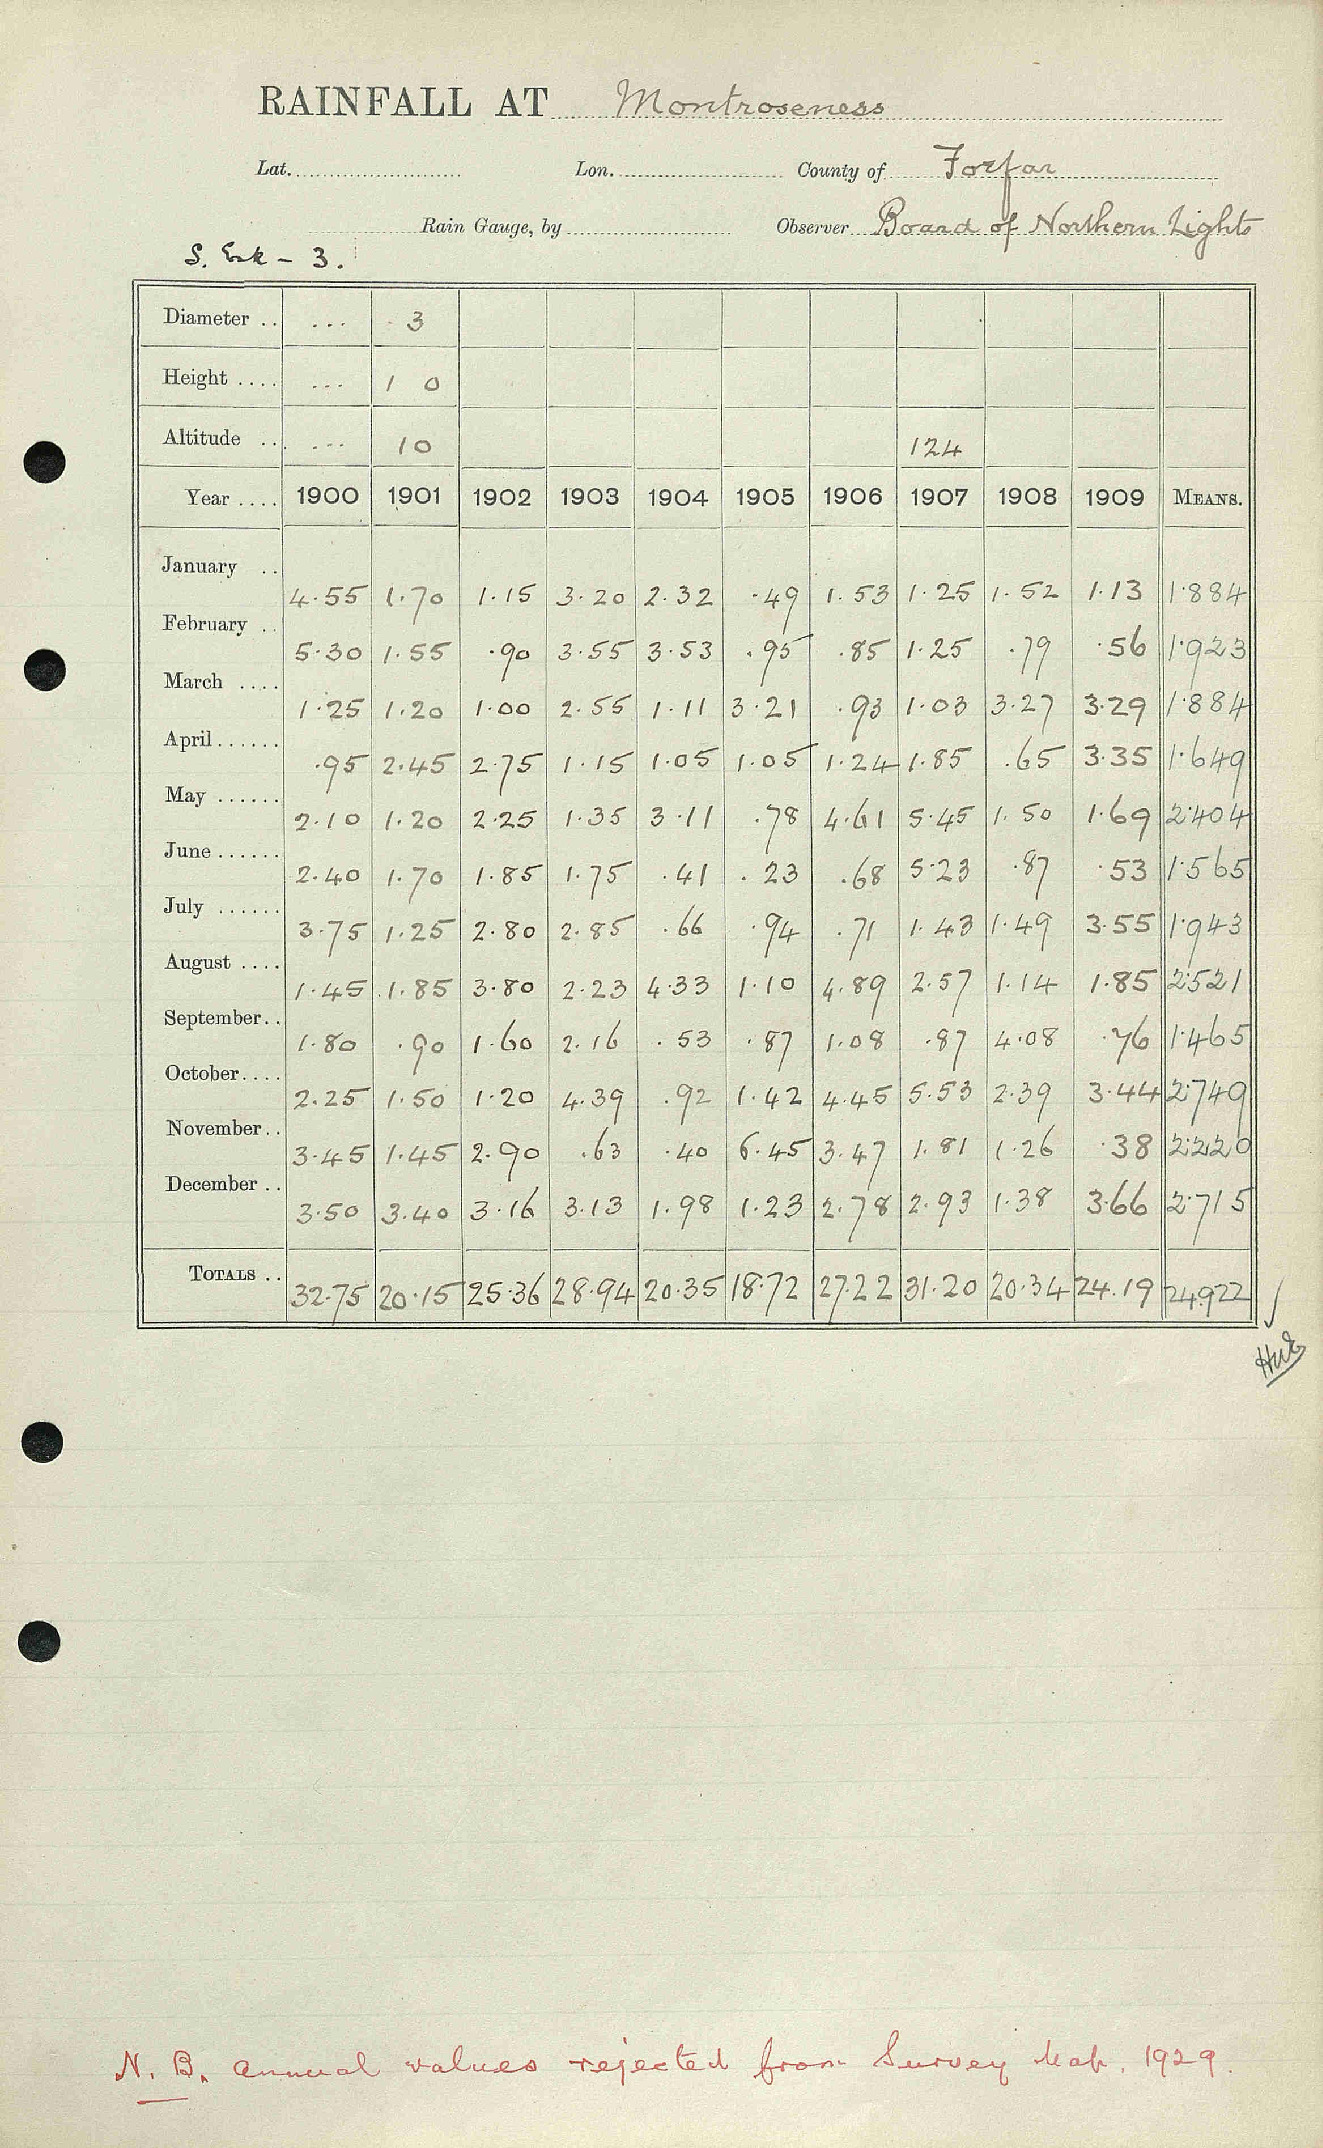 RAINFALL AT Montroseness
Lat. Lon. County of Forfar
Rain Gauge, by Observer Board of Northern Lights
S. Esk - 3.
Diameter .. ... 3
Height .... ... 1 0
Altitude .. ... 10 124
Year .... 1900 1901 1902 1903 1904 1905 1906 1907 1908 1909 MEANS.
January .. 4.55 1.70 1.15 3.20 2.32 .49 1.53 1.25 1.52 1.13 1.884
February .. 5.30 1.55 .90 3.55 3.53 .95 .85 1.25 .79 .56 1.923
March .... 1.25 1.20 1.00 2.55 1.11 3.21 .93 1.03 3.27 3.29 1.884
April ...... .95 2.45 2.75 1.15 1.05 1.05 1.24 1.85 .65 3.35 1.649
May ...... 2.10 1.20 2.25 1.35 3.11 .78 4.61 5.45 1.50 1.69 2.404
June ...... 2.40 1.70 1.85 1.75 .41 .23 .68 5.23 .87 .53 1.565
July ...... 3.75 1.25 2.80 2.85 .66 .94 .71 1.43 1.49 3.55 1.943
August .... 1.45 1.85 3.80 2.23 4.33 1.10 4.89 2.57 1.14 1.85 2.521
September.. 1.80 .90 1.60 2.16 .53 .87 1.08 .87 4.08 .76 1.465
October.... 2.25 1.50 1.20 4.39 .92 1.42 4.45 5.53 2.39 3.44 2.749
November.. 3.45 1.45 2.90 .63 .40 6.45 3.47 1.81 1.26 .38 2.220
December .. 3.50 3.40 3.16 3.13 1.98 1.23 2.78 2.93 1.38 3.66 2.715
TOTALS .. 32.75 20.15 25.36 28.94 20.35 18.72 27.22 31.20 20.34 24.19 24.922
N. B. annual values rejected from Survey Map. 1929.